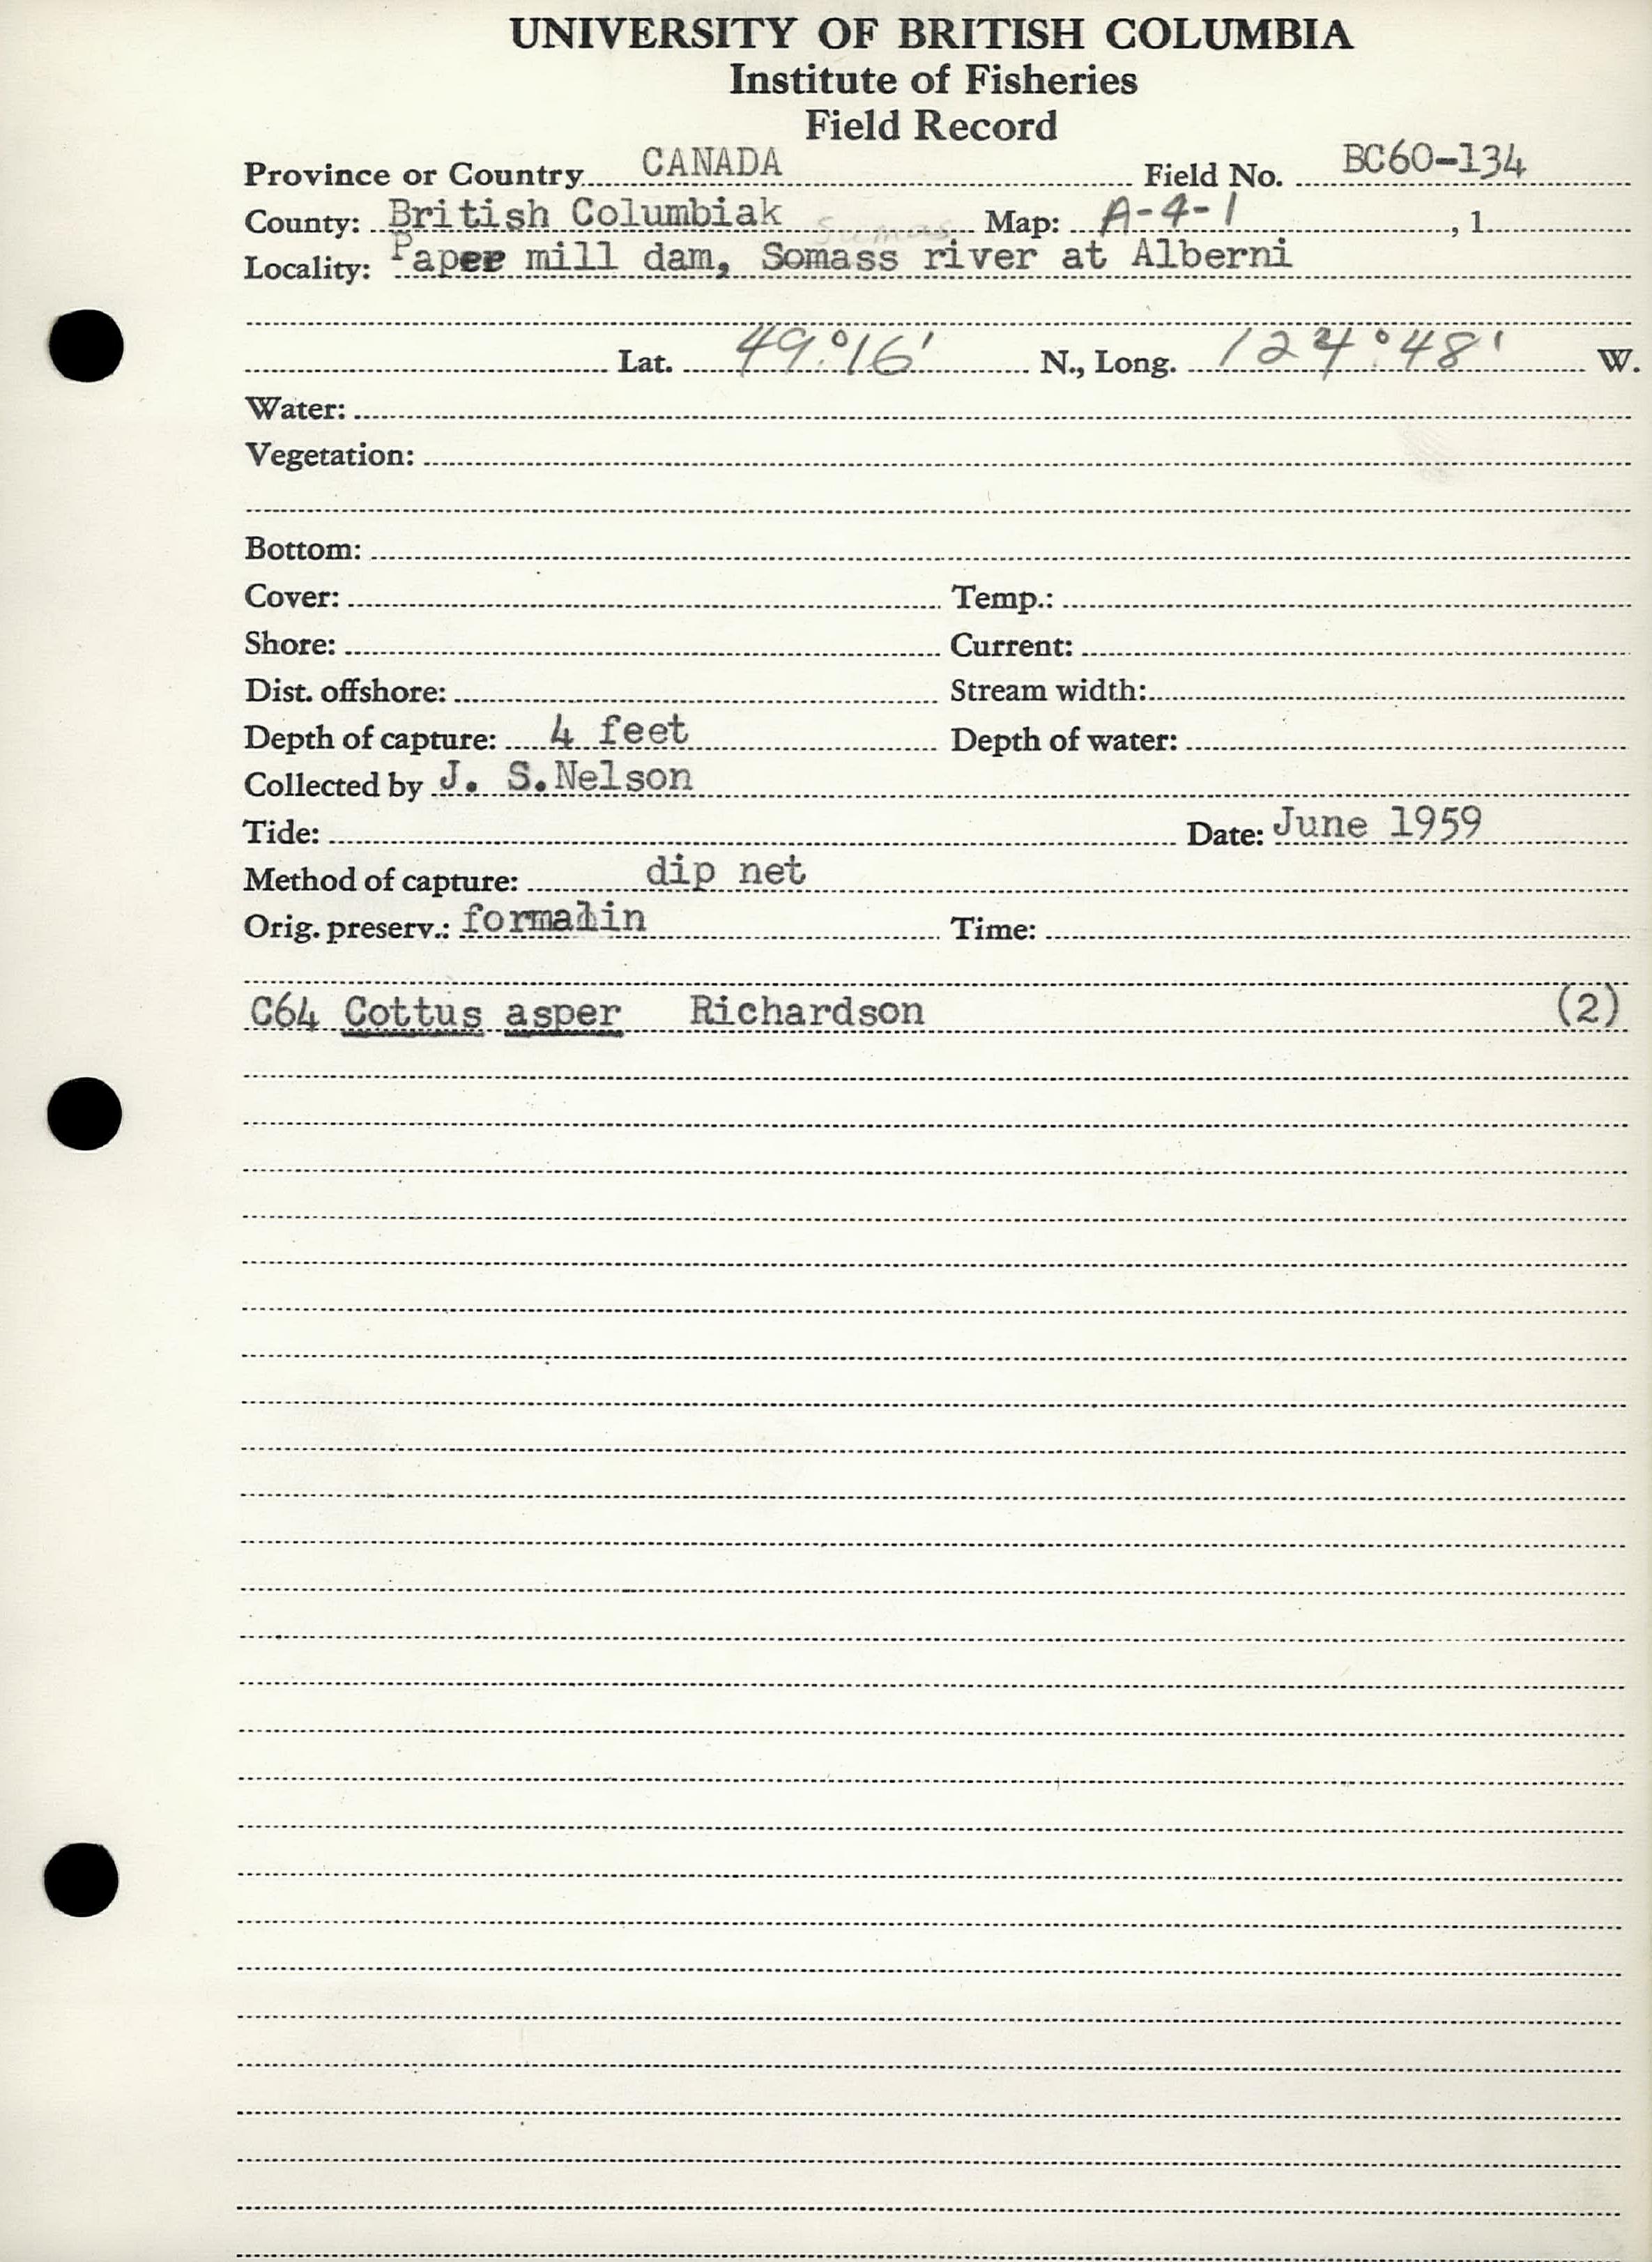 UNIVERSITY OF BRITISH COLUMBIA
Institute of Fisheries
Field Record
Province or Country CANADA Field No. BC60-134
County: British Columbiak Sumas Map: A-4-1 , 1
Locality: Paper mill dam, Somass river at Alberni
Lat. 49°16' N., Long. 124°48' W.
Water:
Vegetation:
Bottom:
Cover: Temp.:
Shore: Current:
Dist. offshore: Stream width:
Depth of capture: 4 feet Depth of water:
Collected by J. S.Nelson
Tide: Date: June 1959
Method of capture: dip net
Orig. preserv.: formalin Time:
C64 Cottus asper Richardson (2)